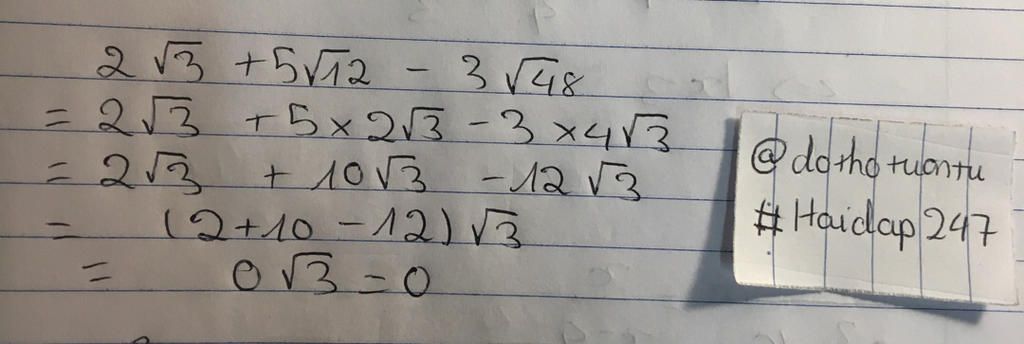 2√3 + 5√12 - 3√48
= 2√3 + 5 × 2√3 - 3 × 4√3
= 2√3 + 10√3 - 12√3
= (2 + 10 - 12)√3
= 0√3 = 0
@dothotuontu
#Haidap247